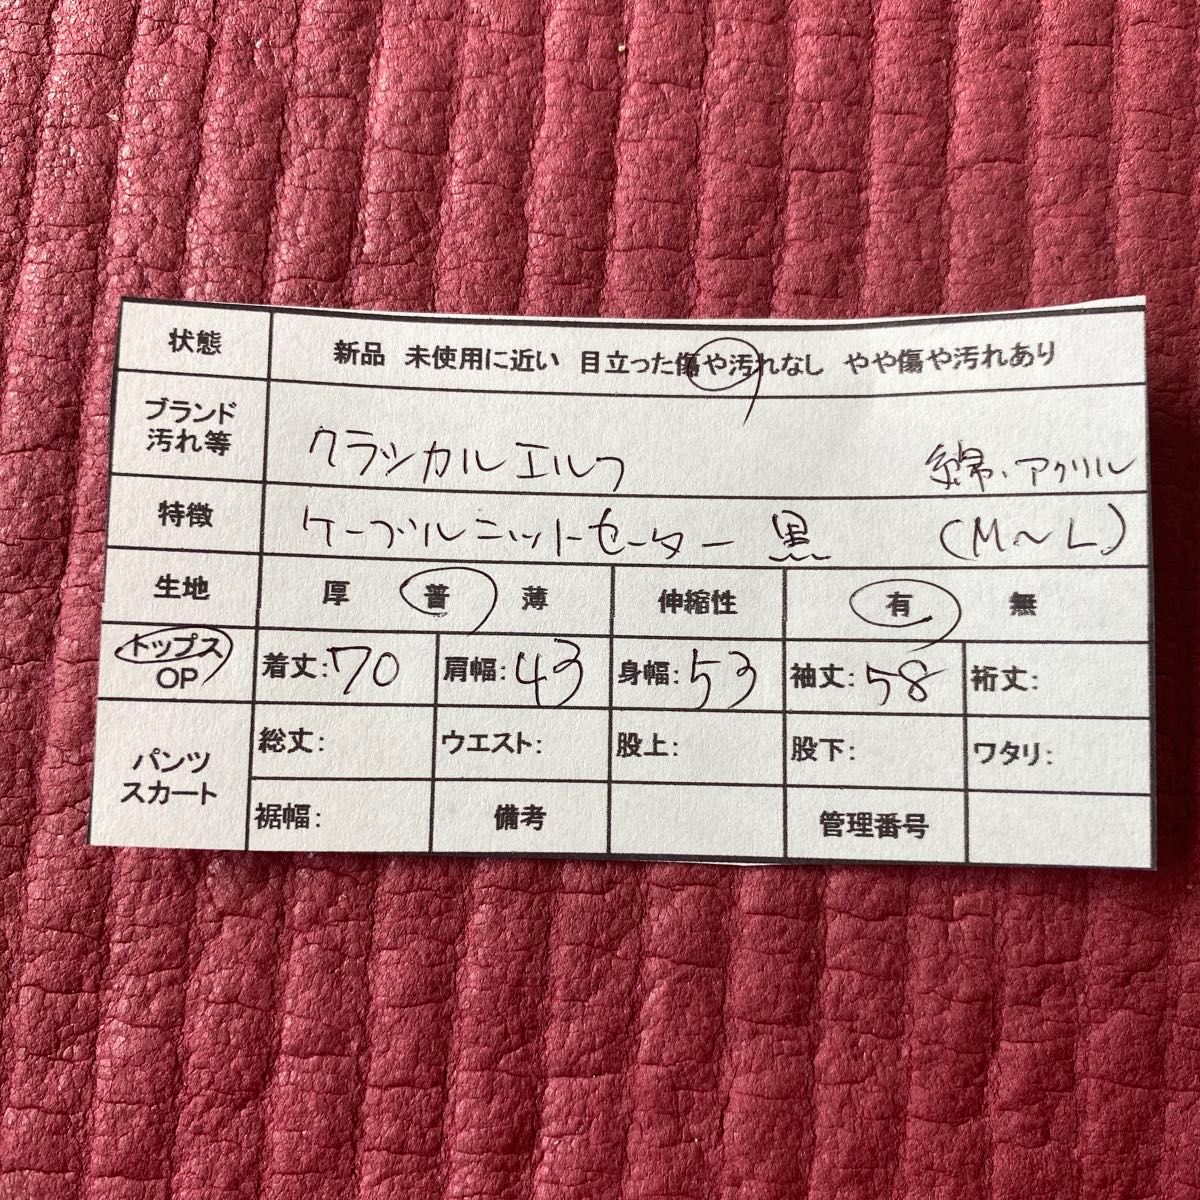 状態 新品 未使用に近い 目立った傷や汚れなし やや傷や汚れあり
ブランド
汚れ等 クラシカルエルフ 綿、アクリル
特徴 ケーブルニットセーター 黒 (M〜L)
生地 厚 普 薄 伸縮性 有 無
トップス
OP 着丈:70 肩幅:43 身幅:53 袖丈:58 裄丈:
パンツ
スカート
総丈: ウエスト: 股上: 股下: ワタリ:
裾幅: 備考 管理番号